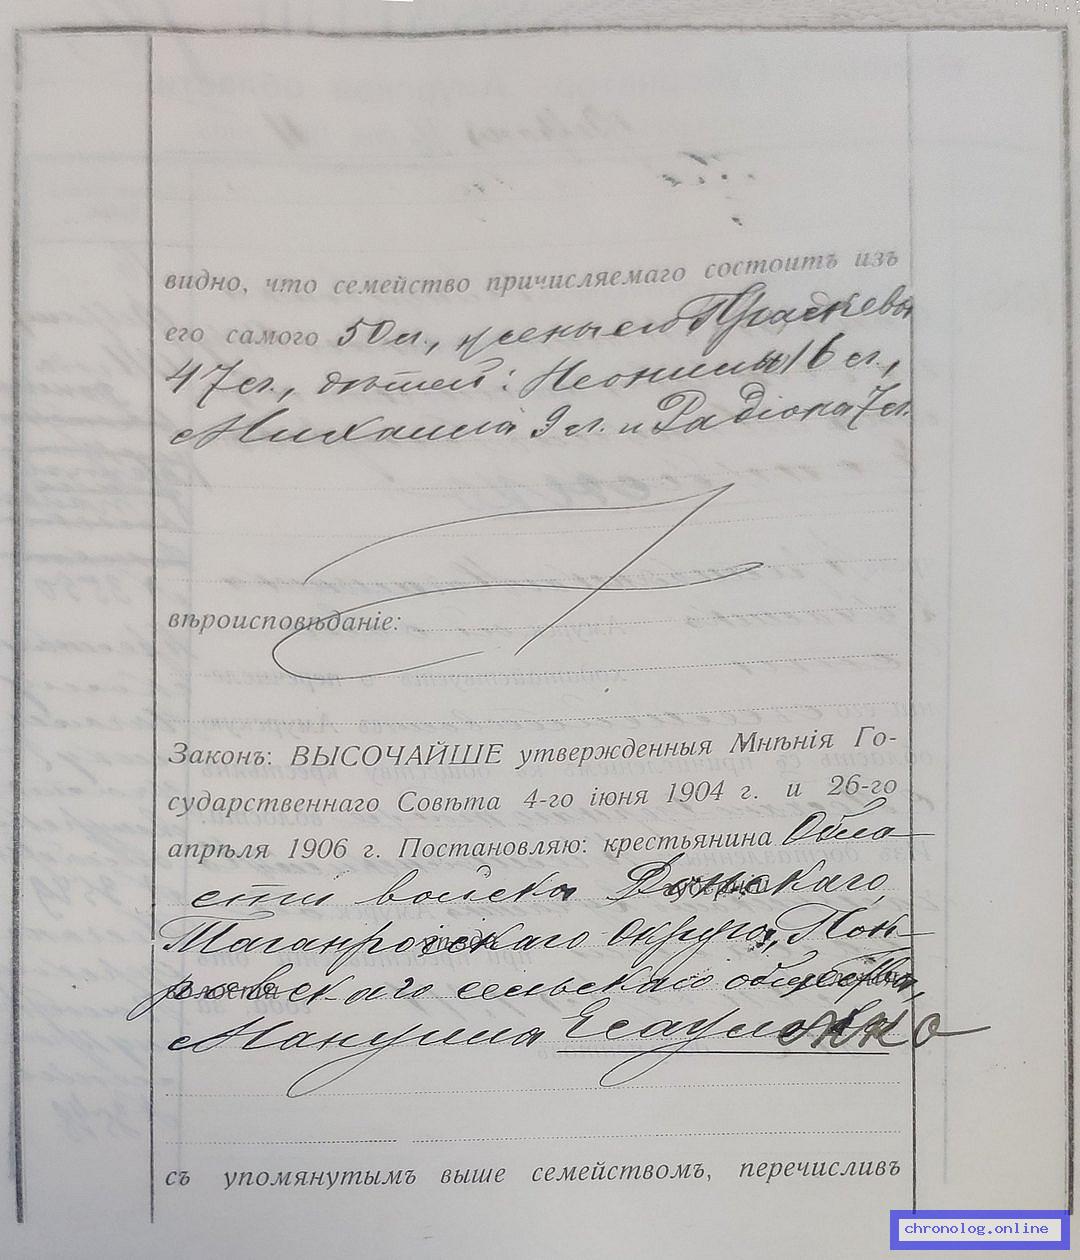 видно, что семейство причисляемаго состоитъ изъ
его самого 50 л., жены его Прасковьи
47 л., дѣтей: Неонилы 16 л.,
Михаила 9 л. и Радіона 7 л.
вѣроисповѣданіе:
Законъ: ВЫСОЧАЙШЕ утвержденныя Мнѣнія Го-
сударственнаго Совѣта 4-го іюня 1904 г. и 26-го
апрѣля 1906 г. Постановляю: крестьянина Обла-
сти войска Донскаго
Таганрогскаго округа,
сельскаго общества,
Мануила Есауленко
съ упомянутымъ выше семействомъ, перечисливъ
chronolog.online